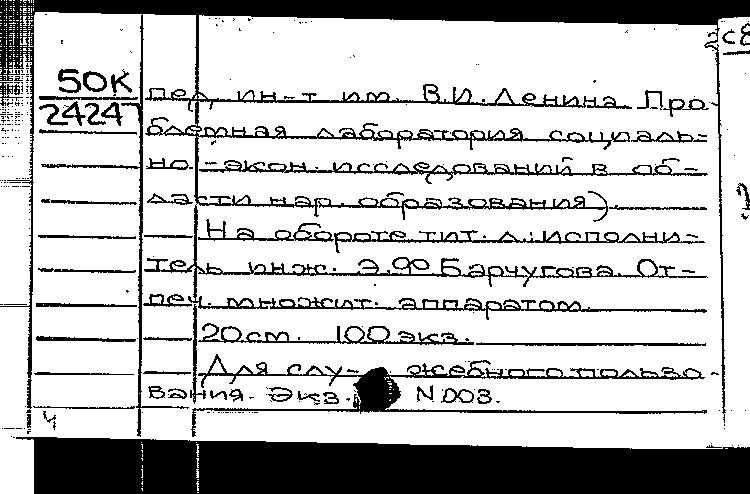 50К
24247
пед. ин-т им. В.И. Ленина. Про-
блемная лаборатория социаль-
но-экон. исследований в об-
ласти нар. образования).
На обороте тит. л.: исполни-
тель инж. Э.Ф. Барчугова. От-
печ. множит. аппаратом.
20 см. 100 экз.
Для слу- жебного пользо-
вания. Экз. N 003.